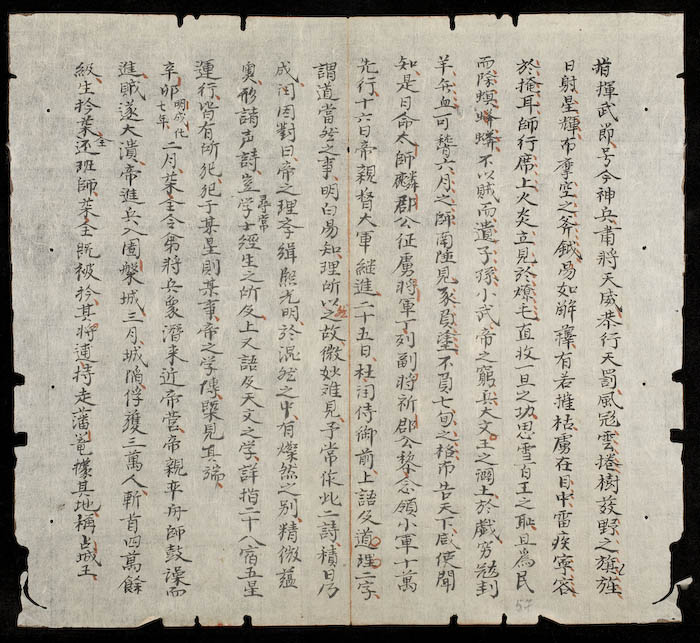 指揮武節号令神兵肅將天威恭行天罰風冦雲捲樹兹野之旗旌
日射星輝布摩空之斧鉞易如解籜有若摧枯虜在目中雷疾寧容
於掩耳師行席上火炎立見於燎毛直收一旦之功思雪百王之恥且爲民
而除螟螣蟊不以賊而遺子孫小武帝之窮兵大文王之闢土於戲穷冦刲
羊無血可謦六月之師南陲見豕負塗不啻七旬之格市告天下咸使聞
知是日命太師麟郡公征虜將軍丁列副將祈郡公黎念領小軍十萬
先行十六日帝親督大軍継進二十五日杜閏侍御前上語及道理二字
謂道當然之事明白易知理所以之故微妙难見予常作此二詩積日乃
成閏因對曰帝之理孝緝熙光明於混然之中有燦然之别精微蘊
奥形諸声詩豈尋常学士經生之所及上又語及天文之学詳指二十八宿五星
運行皆有所犯犯于某星則某事帝之学傳槩見其端
辛卯明成化七年二月茶全令弟將兵象潛来近帝营帝親率舟師鼓澡而
進賊遂大潰帝進兵入圍槃城三月城陷俘獲三萬人斬首四萬餘
級生擒茶全还班師茶全既被擒其將逋持走藩篭據其地稱占城王
57